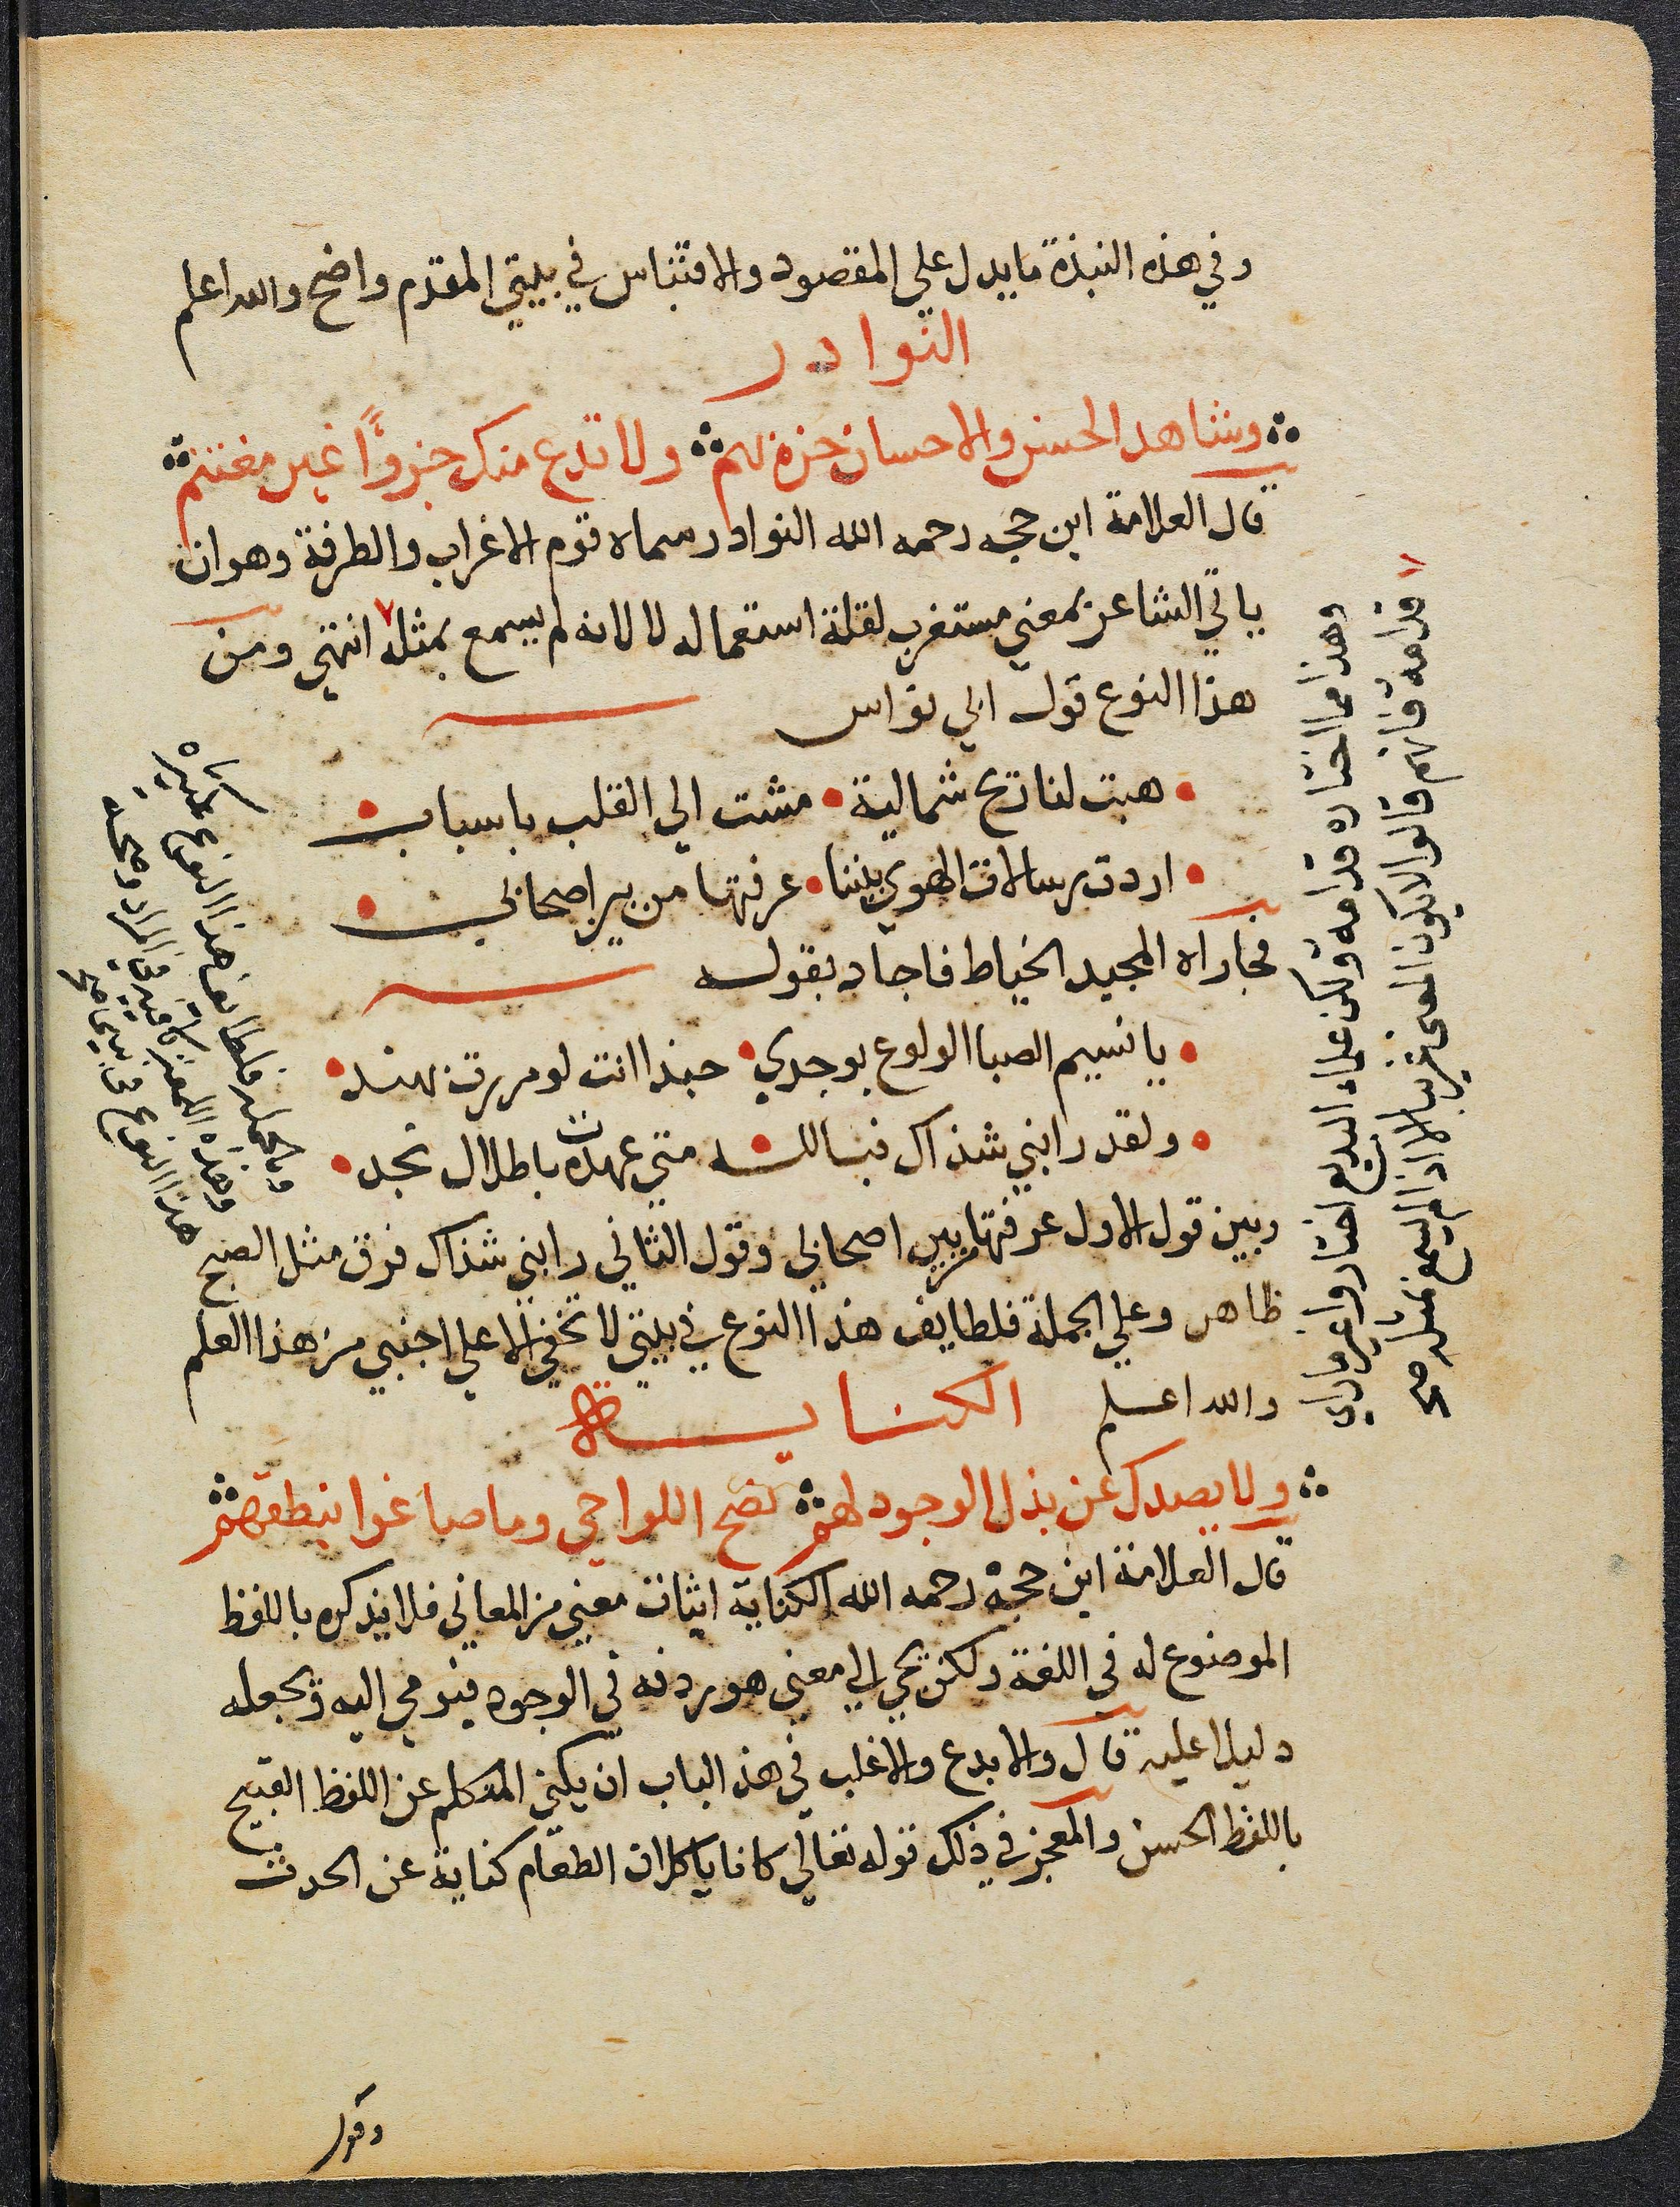 وفي هذه النبذة ما يدل علي المقصود والاقتباس في بيتي المقدم واضح والله اعلم
النوادر
وشاهد الحسن والاحسان حزه بهم ولا تدع منك جزوًا غير مغتنم
قال العلامة ابن حجه رحمه الله النوادر سماه قوم الاغراب والطرفة وهو ان
ياتي الشاعر بمعني مستغرب لقلة استعماله لا لانه لم يسمع بمثله ٧ انتهي ومن
هذا النوع قول ابي نواس
هبت لنا ريح شمالية • مشت الي القلب باسباب
ادت رسالات الهوي بيننا • عرفتها من بين اصحابي
فجاراه المجيد الخياط فاجاد بقوله
يا نسيم الصبا الولوع بوجدي • حبذا انت لو مررت بهند
ولقد رابني شذاك فبالله متي عهده باطلال نجد
وبين قول الاول عرفتها من بين اصحابي وقول الثاني رابني شذاك فرق مثل الصبح
ظاهر وعلي الجملة فلطايف هذا النوع في بيتي لا تخفي الا علي اجنبي من هذا العلم
والله اعلم الكناية
ولا يصدك عن بذل الوجود لهم نصح اللواحي وما صاغوا بنطقهم
قال العلامة ابن حجة رحمه الله الكناية اثبات معني من المعاني فلا يذكره باللفظ
الموضوع له في اللغة ولكن يجي الي معني هو ردفه في الوجود فيومي اليه ويجعله
دليلا عليه قال والابدع والاغلب في هذ الباب ان يكني المتكلم عن اللفظ القبيح
باللفظ الحسن والمعجز في ذلك قوله تعالي كانا ياكلان الطعام كناية عن الحدث
وقول
٧
وهذا مما اختاره قدامه ولكن علماء البديع اختاروا غير ما راي
قدامه فانهم قالوا لا يكون المعنى غريبا الا اذا لم يسمع بمثله صح
وبالجملة فلطايف هذا النوع كثيره
وهذه كافيه في المراد
هذا النوع في بيتي صح